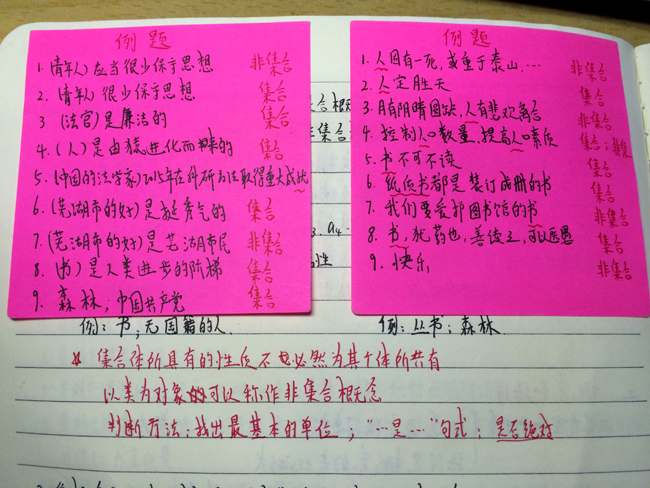 例题
1. (青年人)应当很少保守思想 非集合
2. (青年人)很少保守思想 集合
3 (法官)是廉洁的 集合
4. (人)是由猿进化而来的 集合
5. (中国的法学家)2015年在科研方法取得重大成就
6. (芜湖市的好)是挺秀气的 集合
7. (芜湖市的好)是芜湖市民 非集合
8. (书)是人类进步的阶梯 集合
9. 森林,中国共产党 集合
例题
1. 人固有一死,或重于泰山.… 非集合
2. 人定胜天 集合
3. 月有阴晴圆缺,人有悲欢离合 非集合
4. 控制人口数量,提高人口素质 集合;非集
5. 书不可不读 集合
6. 纸质书都是装订成册的书 非集合
7. 我们要爱护图书馆的书 非集合
8. 书,犹药也,善读之,可以医愚 集合
9. 快乐 非集合
合概
集合
3. a4
性
例:书;无国籍的人. 例:丛书;森林.
* 集合体所具有的性质不必然为其个体所共有
以类为对象的可以称作非集合概念
判断方法:找出最基本的单位;"…是…"句式;是否绝对